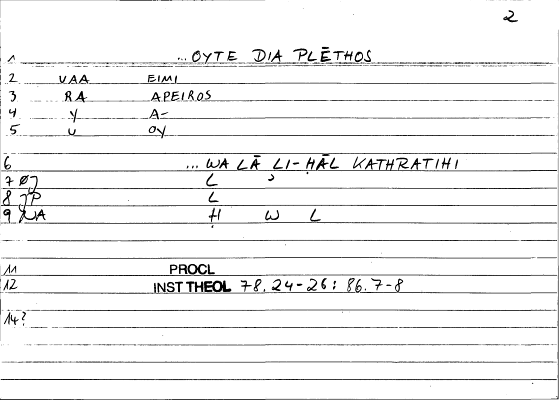 2
1 ...OYTE DIA PLĒTHOS
2 VAA EIMI
3 RA APEIROS
4 Y A-
5 U OY
6 ...WA LĀ LI-ḤĀL KATHRATIHI
7 L ʾ
8 L
9 NA Ḥ W L
11 PROCL
12 INST THEOL 78.24-26: 86.7-8
14?